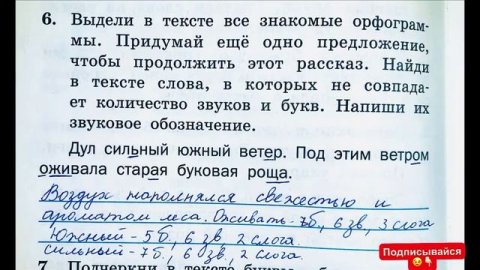 6. Выдели в тексте все знакомые орфограм-
мы. Придумай ещё одно предложение,
чтобы продолжить этот рассказ. Найди
в тексте слова, в которых не совпада-
ет количество звуков и букв. Напиши их
звуковое обозначение.
Дул сильный южный ветер. Под этим ветром
оживала старая буковая роща.
Воздух наполнялся свежестью и
ароматом леса. Оживать-7б, 6 зв, 3 слога
Южный-5б, 6 зв, 2 слога.
сильный-7б, 6 зв, 2 слога.
Подписывайся
7. Подчеркни в тексте буквы